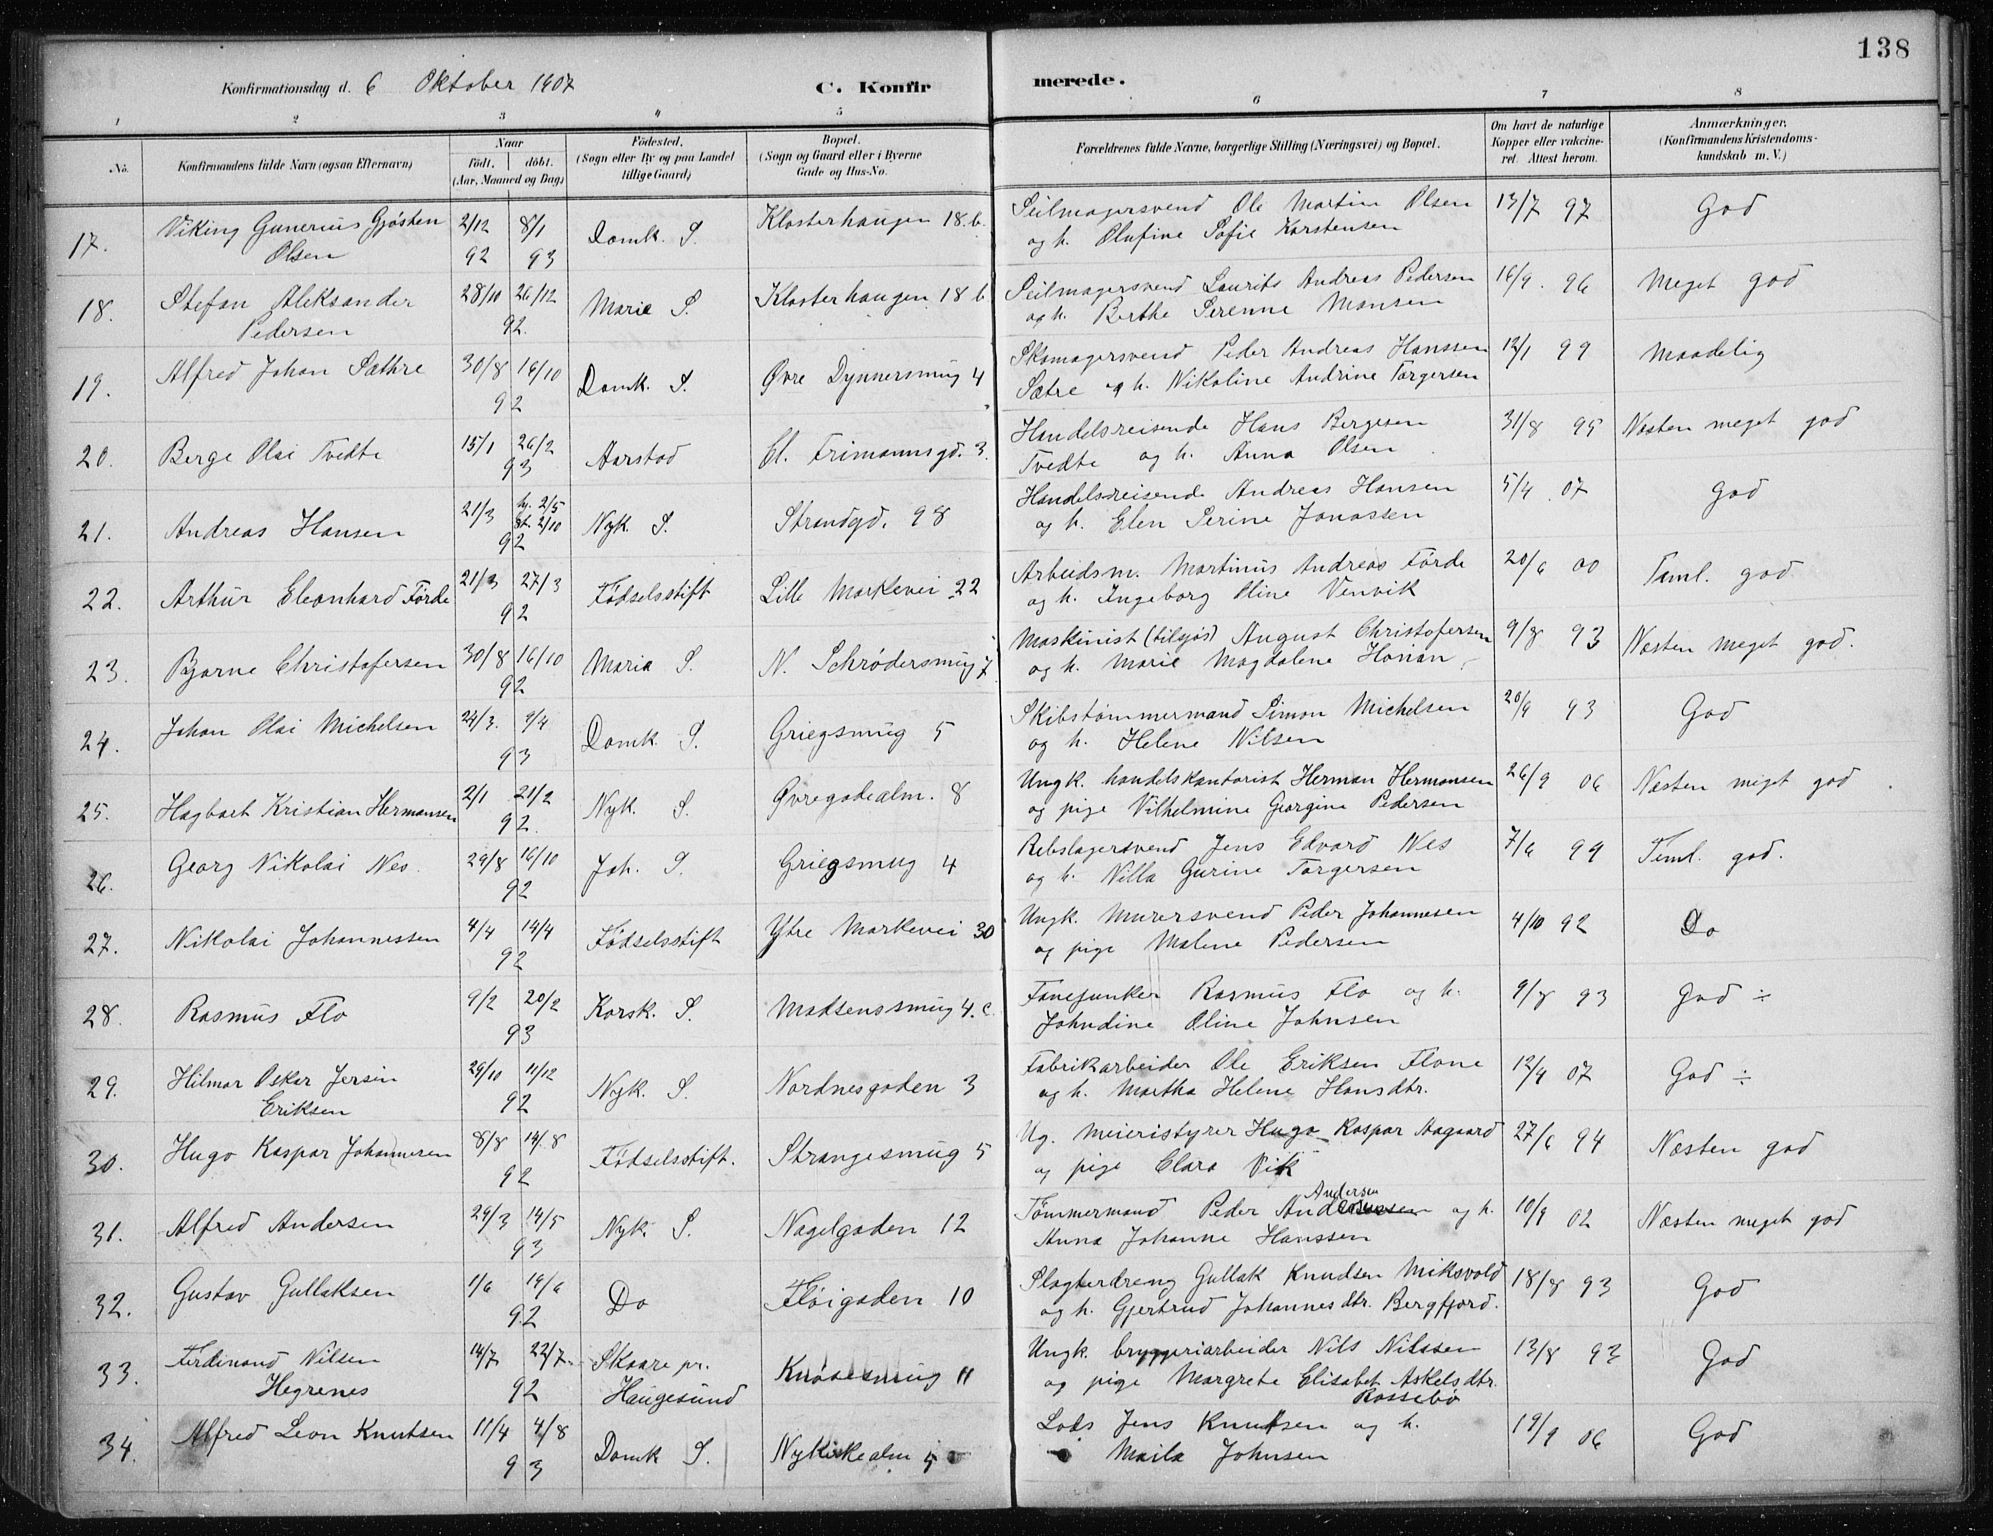 138
Konfirmationsdag d. 6 Oktober 1907
C. Konfirmerede.
1 2 3 4 5 6 7 8
No.
Konfirmandens fulde Navn (ogsaa Efternavn)
Naar født. døbt. (Aar, Maaned og Dag)
Fødested. (Sogn eller By og paa Landet tillige Gaard)
Bopæl. (Sogn og Gaard eller i Byerne Gade og Hus-No.
Forældrenes fulde Navne, borgerlige Stilling (Næringsvei) og Bopæl.
Om havt de naturlige Kopper eller vakcineret. Attest herom.
Anmærkninger, (Konfirmandens Kristendomskundskab m. V.)
17. Viking Gunerius Gjøsten Olsen 2/12 92 8/1 93 Domk. S. Klosterhaugen 18.b. Seilmagersvend Ole Martin Olsen og h. Olufine Sofie Karstensen 13/7 97 God
18. Stefan Aleksander Pedersen 28/10 26/12 92. Marie S. Klosterhaugen 18 b Seilmagersvend Laurits Andreas Pedersen og h. Berthe Serenne Monsen 16/9. 96 Meget god
19. Alfred Johan Sæthre 30/8 16/10 92 Domk. S. Øvre Dynnersmug 4 Skomagersvend Peder Andreas Hanssen Sætre og h. Nikoline Andrine Torgersen 12/1 99 Maadelig
20. Berge Olai Tvedte 15/1 26/2 93 Aarstad Cl. Frimannsgd. 3. Handelsreisende Hans Bergesen Tvedte og h. Anna Olsen 31/8 95 Næsten meget god
21. Andreas Hansen 21/3 hj. 2/5 st. 2/10 92 Nyk. S. Strandgd. 98 Handelsreisende Andreas Hansen og h. Elen Serine Jonassen 5/4 07 God
22. Arthur Eleonhard Førde 21/3 27/3 92 Fødselsstift Lille Markevei 22 Arbeidsm. Martinus Andreas Førde og h. Ingeborg Oline Venvik 20/6 00 Taml. god
23. Bjarne Christofersen 30/8 16/10 92 Maria S. N. Schrødersmug 7 Maskinist (tilsjøs) August Christofersen og h. Marie Magdalene 9/8 93 Næsten meget god.
24. Johan Olai Michelsen 24/3. 9/4 93 Domk. S. Griegsmug 5 Skibstømmermand Simon Michelsen og h. Helene Nilsen 20/9 93 God
25. Hagbart Kristian Hermansen 2/1 21/2 92. Nyk. S. Øvregadealm. 8 Ungk. handelskontorist Herman Hermansen og pige Vilhelmine Georgine Pedersen 26/9 06 Næsten meget god
26. Georg Nikolai Nes. 29/8 16/10 92 Joh. S. Griegsmug 4 Rebslagersvend Jens Edvard Nes og h. Nilla Gurine Torgersen 7/6 99 Teml. god.
27. Nikolai Johannessen 4/4 14/4 92 Fødselsstift Ytre Markevei 30 Ungk. Murersvend Peder Johannesen og pige Malene Pedersen 4/10 92 Do
28. Rasmus Flo 9/2 20/2 93 Korsk. S. Madsenssmug 4.c. Fanejunker Rasmus Flo og h. Johndine Oline Johnsen 9/8 93 God ÷
29. Hilmar Oskar Jersin Eriksen 29/10 11/12 92 Nyk. S. Nordnesgaden 3 Fabrikarbeider Ole Eriksen Flone og h. Martha Helene Hansdtr. 12/4 07 God ÷
30. Hugo Kaspar Johannesen 8/8 14/8 92 Fødselsstift. Strangesmug 5 Ug. meieristyrer Hugo Kaspar Aagaard og pige Clara Vik 27/6 94 Næsten god
31. Alfred Andersen 29/3 14/5 93 Nyk. S. Nagelgaden 12 Tømmermand Peder Andersen og h. Anna Johanne Hanssen 10/9 02 Næsten meget god
32. Gustav Gullaksen 1/6 19/6 92 Do Fløigaden 10 Slagterdreng Gullak Knudsen Miksvold og h. Gjertrud Johannesdtr. Bergfjord. 18/8 93 God
33. Ferdinand Nilsen Hegrenes 14/7 22/7 92 Skaare pr. Haugesund Knøsesmug 11 Ungk. bryggeriarbeider Nils Nilssen og pige Margrete Elisabet Askelsdtr. Rossebø 13/8 93 God
34. Alfred Leon Knutsen 11/4 4/8 93 Domk S. Nykirkealm 5 Lods Jens Knutsen og h. Maila Johnsen 19/9 06 God